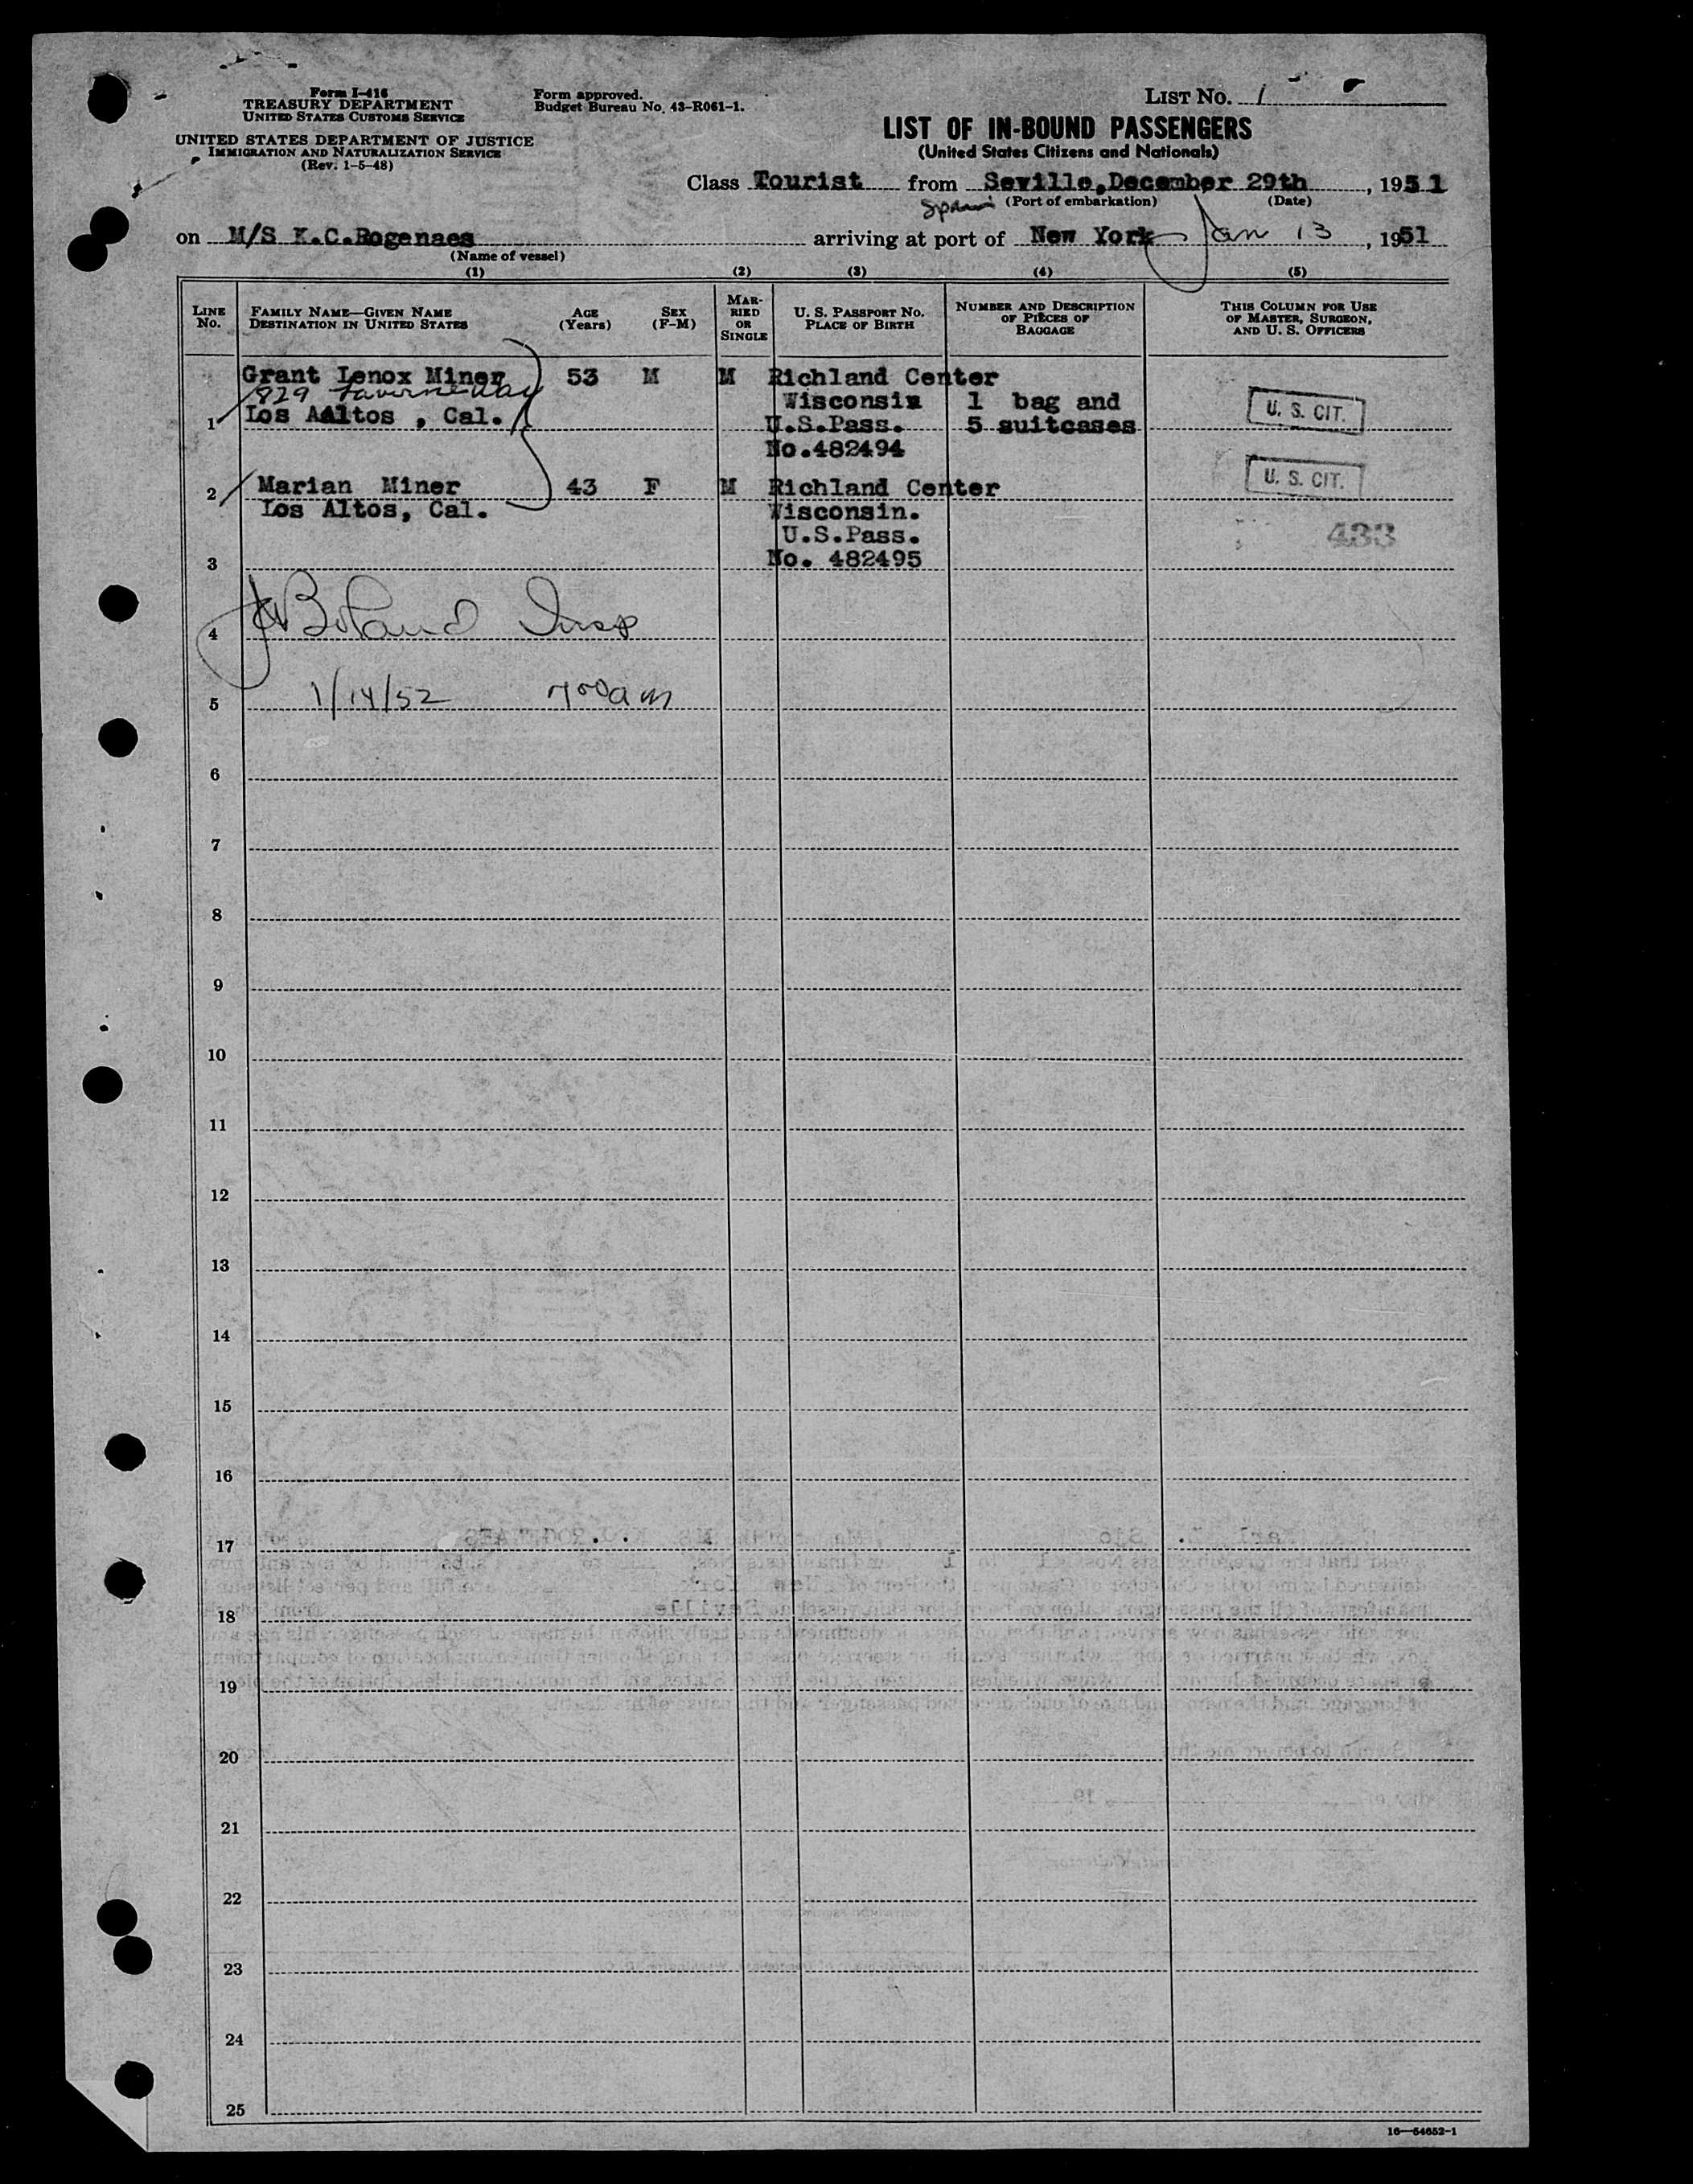 Form I-416
TREASURY DEPARTMENT
UNITED STATES CUSTOMS SERVICE
UNITED STATES DEPARTMENT OF JUSTICE
IMMIGRATION AND NATURALIZATION SERVICE
(Rev. 1-5-48)
Form approved.
Budget Bureau No. 43-R061-1.
LIST NO. 1
LIST OF IN-BOUND PASSENGERS
(United States Citizens and Nationals)
Class Tourist from Seville, December 29th, 1951
Spain (Port of embarkation) (Date)
on M/S K.C.Rogenaes arriving at port of New York Jan 13, 1951
(Name of vessel)
(1) (2) (3) (4) (5)
LINE NO.
FAMILY NAME—GIVEN NAME
DESTINATION IN UNITED STATES
AGE
(Years)
SEX
(F-M)
MARRIED OR SINGLE
U. S. PASSPORT NO.
PLACE OF BIRTH
NUMBER AND DESCRIPTION
OF PIECES OF
BAGGAGE
THIS COLUMN FOR USE
OF MASTER, SURGEON,
AND U. S. OFFICERS
Grant Lenox Miner 53 M M Richland Center
829
Wisconsin 1 bag and
1 Los Aaltos , Cal. U.S.Pass. 5 suitcases U. S. CIT.
No.482494
2 Marian Miner 43 F M Richland Center U. S. CIT.
Los Altos, Cal. Wisconsin.
U.S.Pass. 433
3 No. 482495
4 Boland Insp
5 1/14/52 700am
6
7
8
9
10
11
12
13
14
15
16
17
18
19
20
21
22
23
24
25
16—54652-1